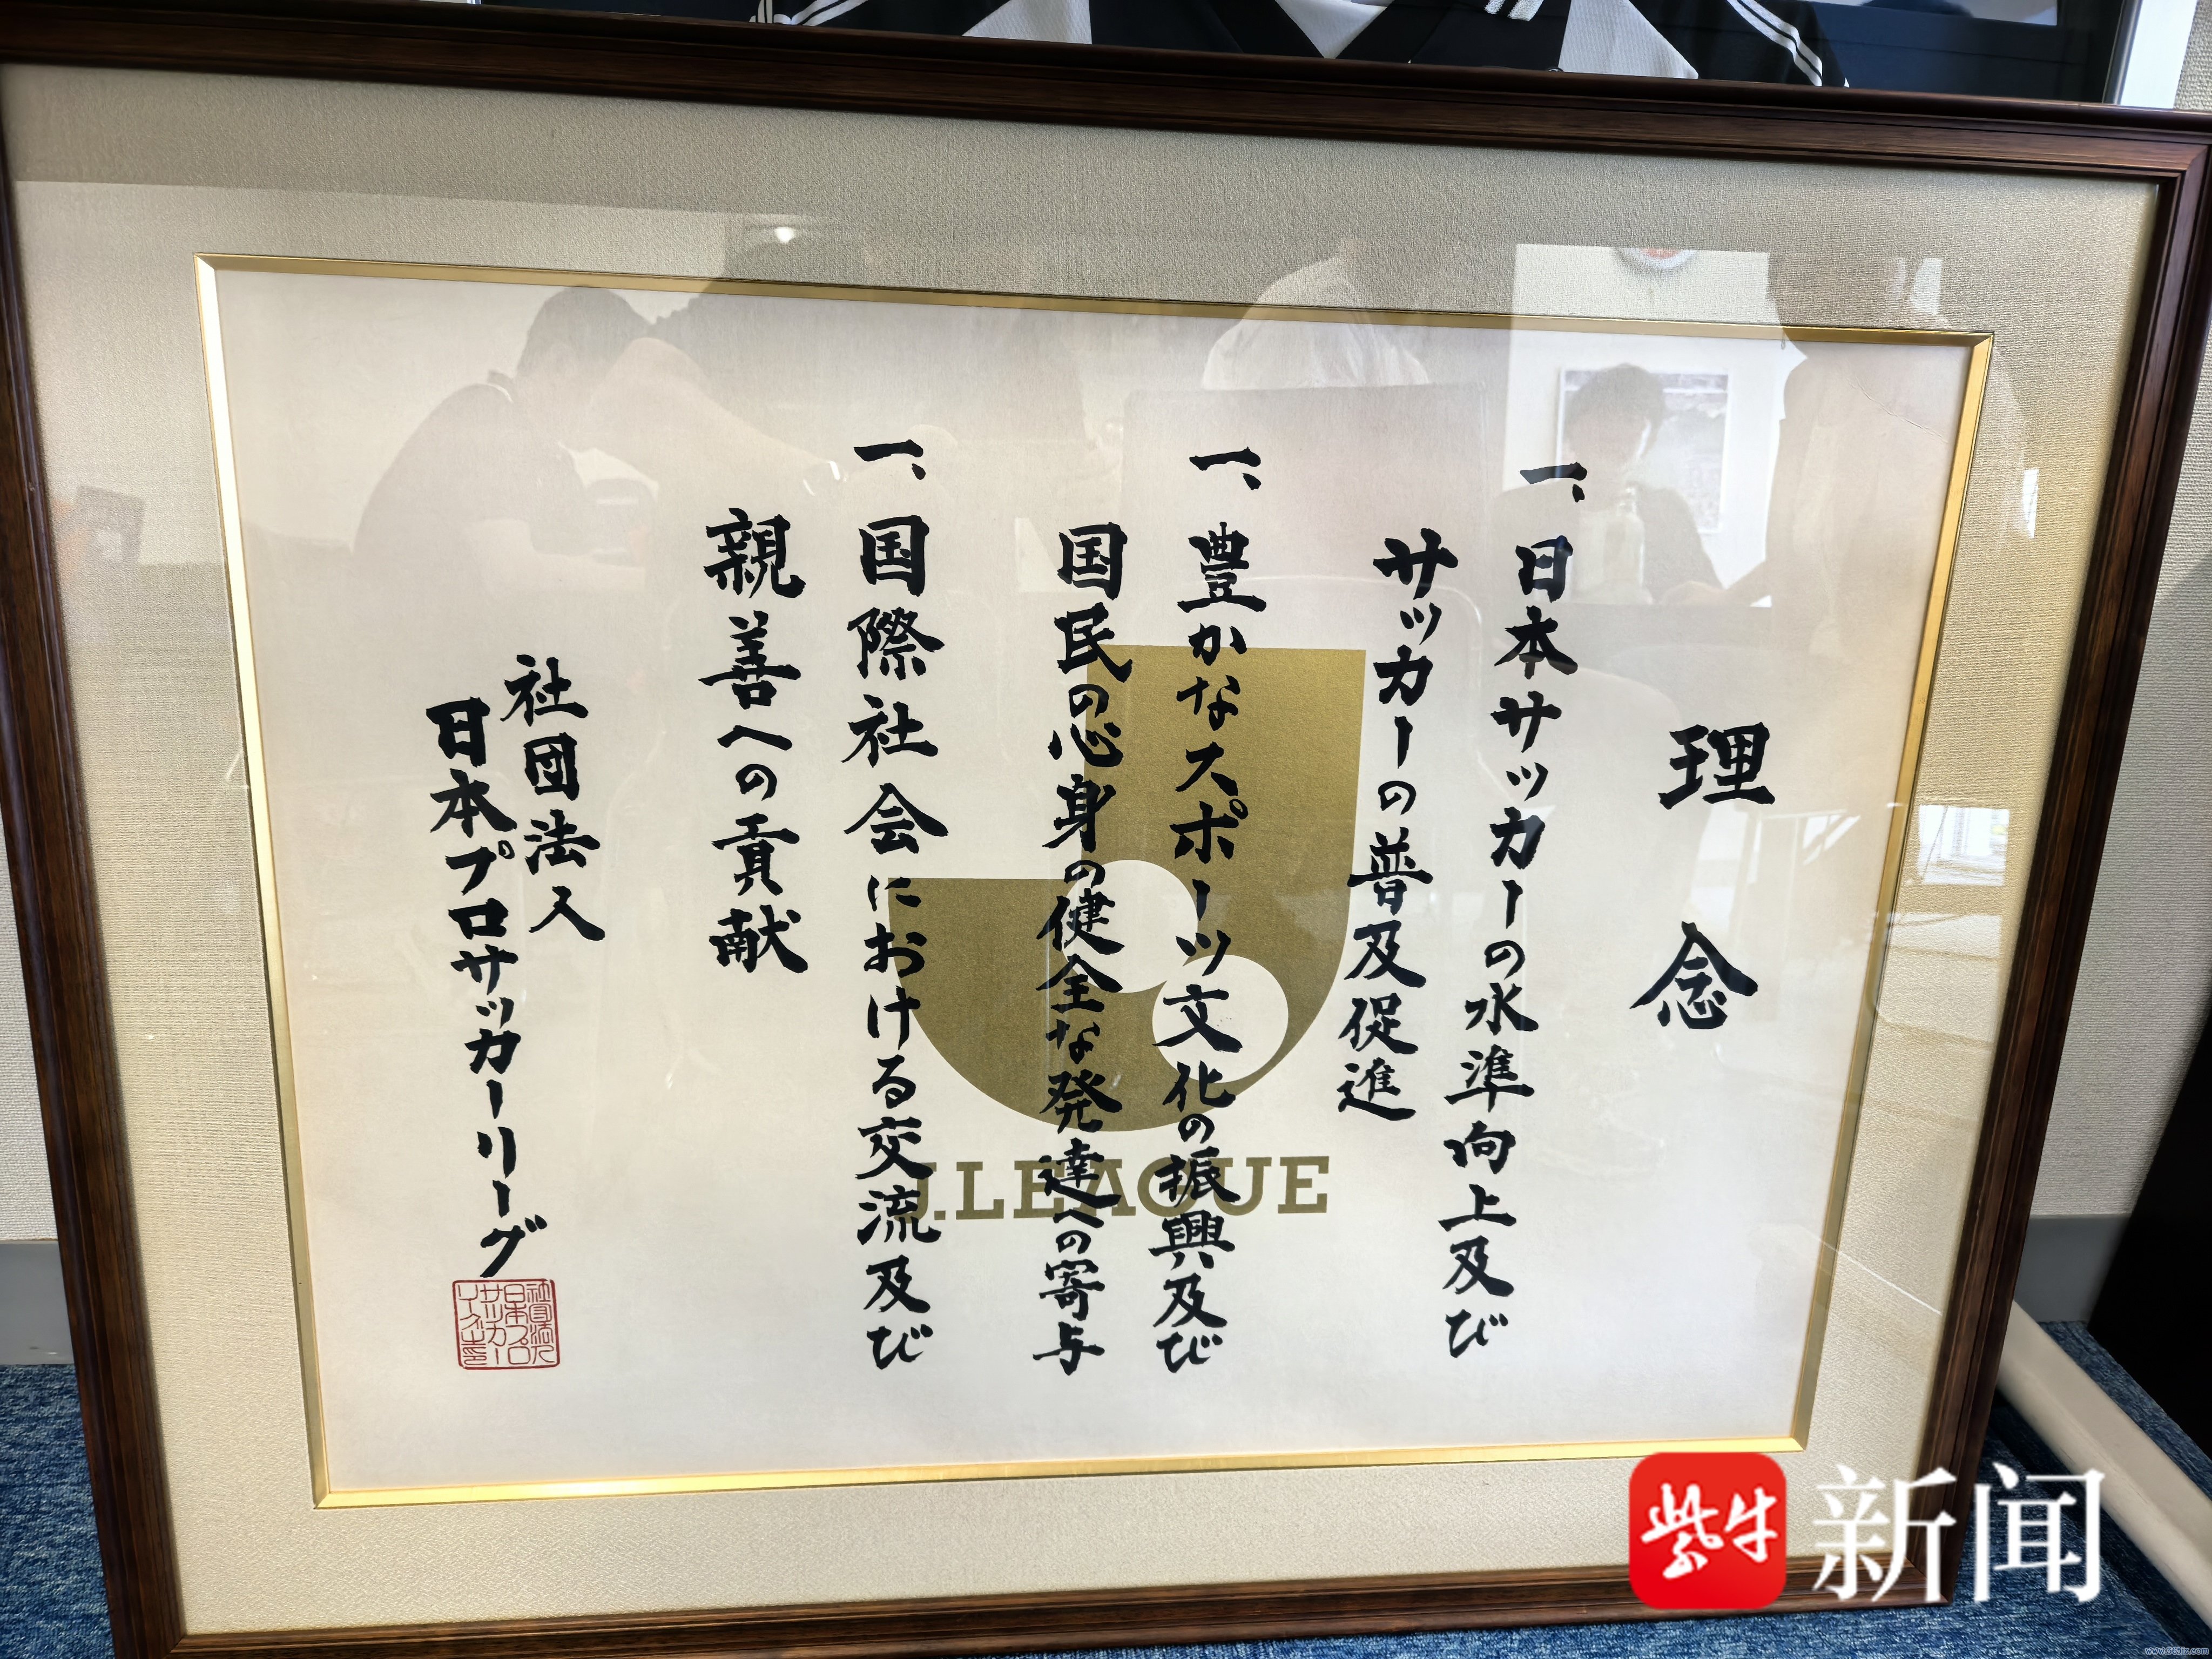 理念
一、日本サッカーの水準向上及び
サッカーの普及促進
一、豊かなスポーツ文化の振興及び
国民の心身の健全な発達への寄与
一、国際社会における交流及び
親善への貢献
社団法人
日本プロサッカーリーグ
J.LEAGUE
紫牛
新闻